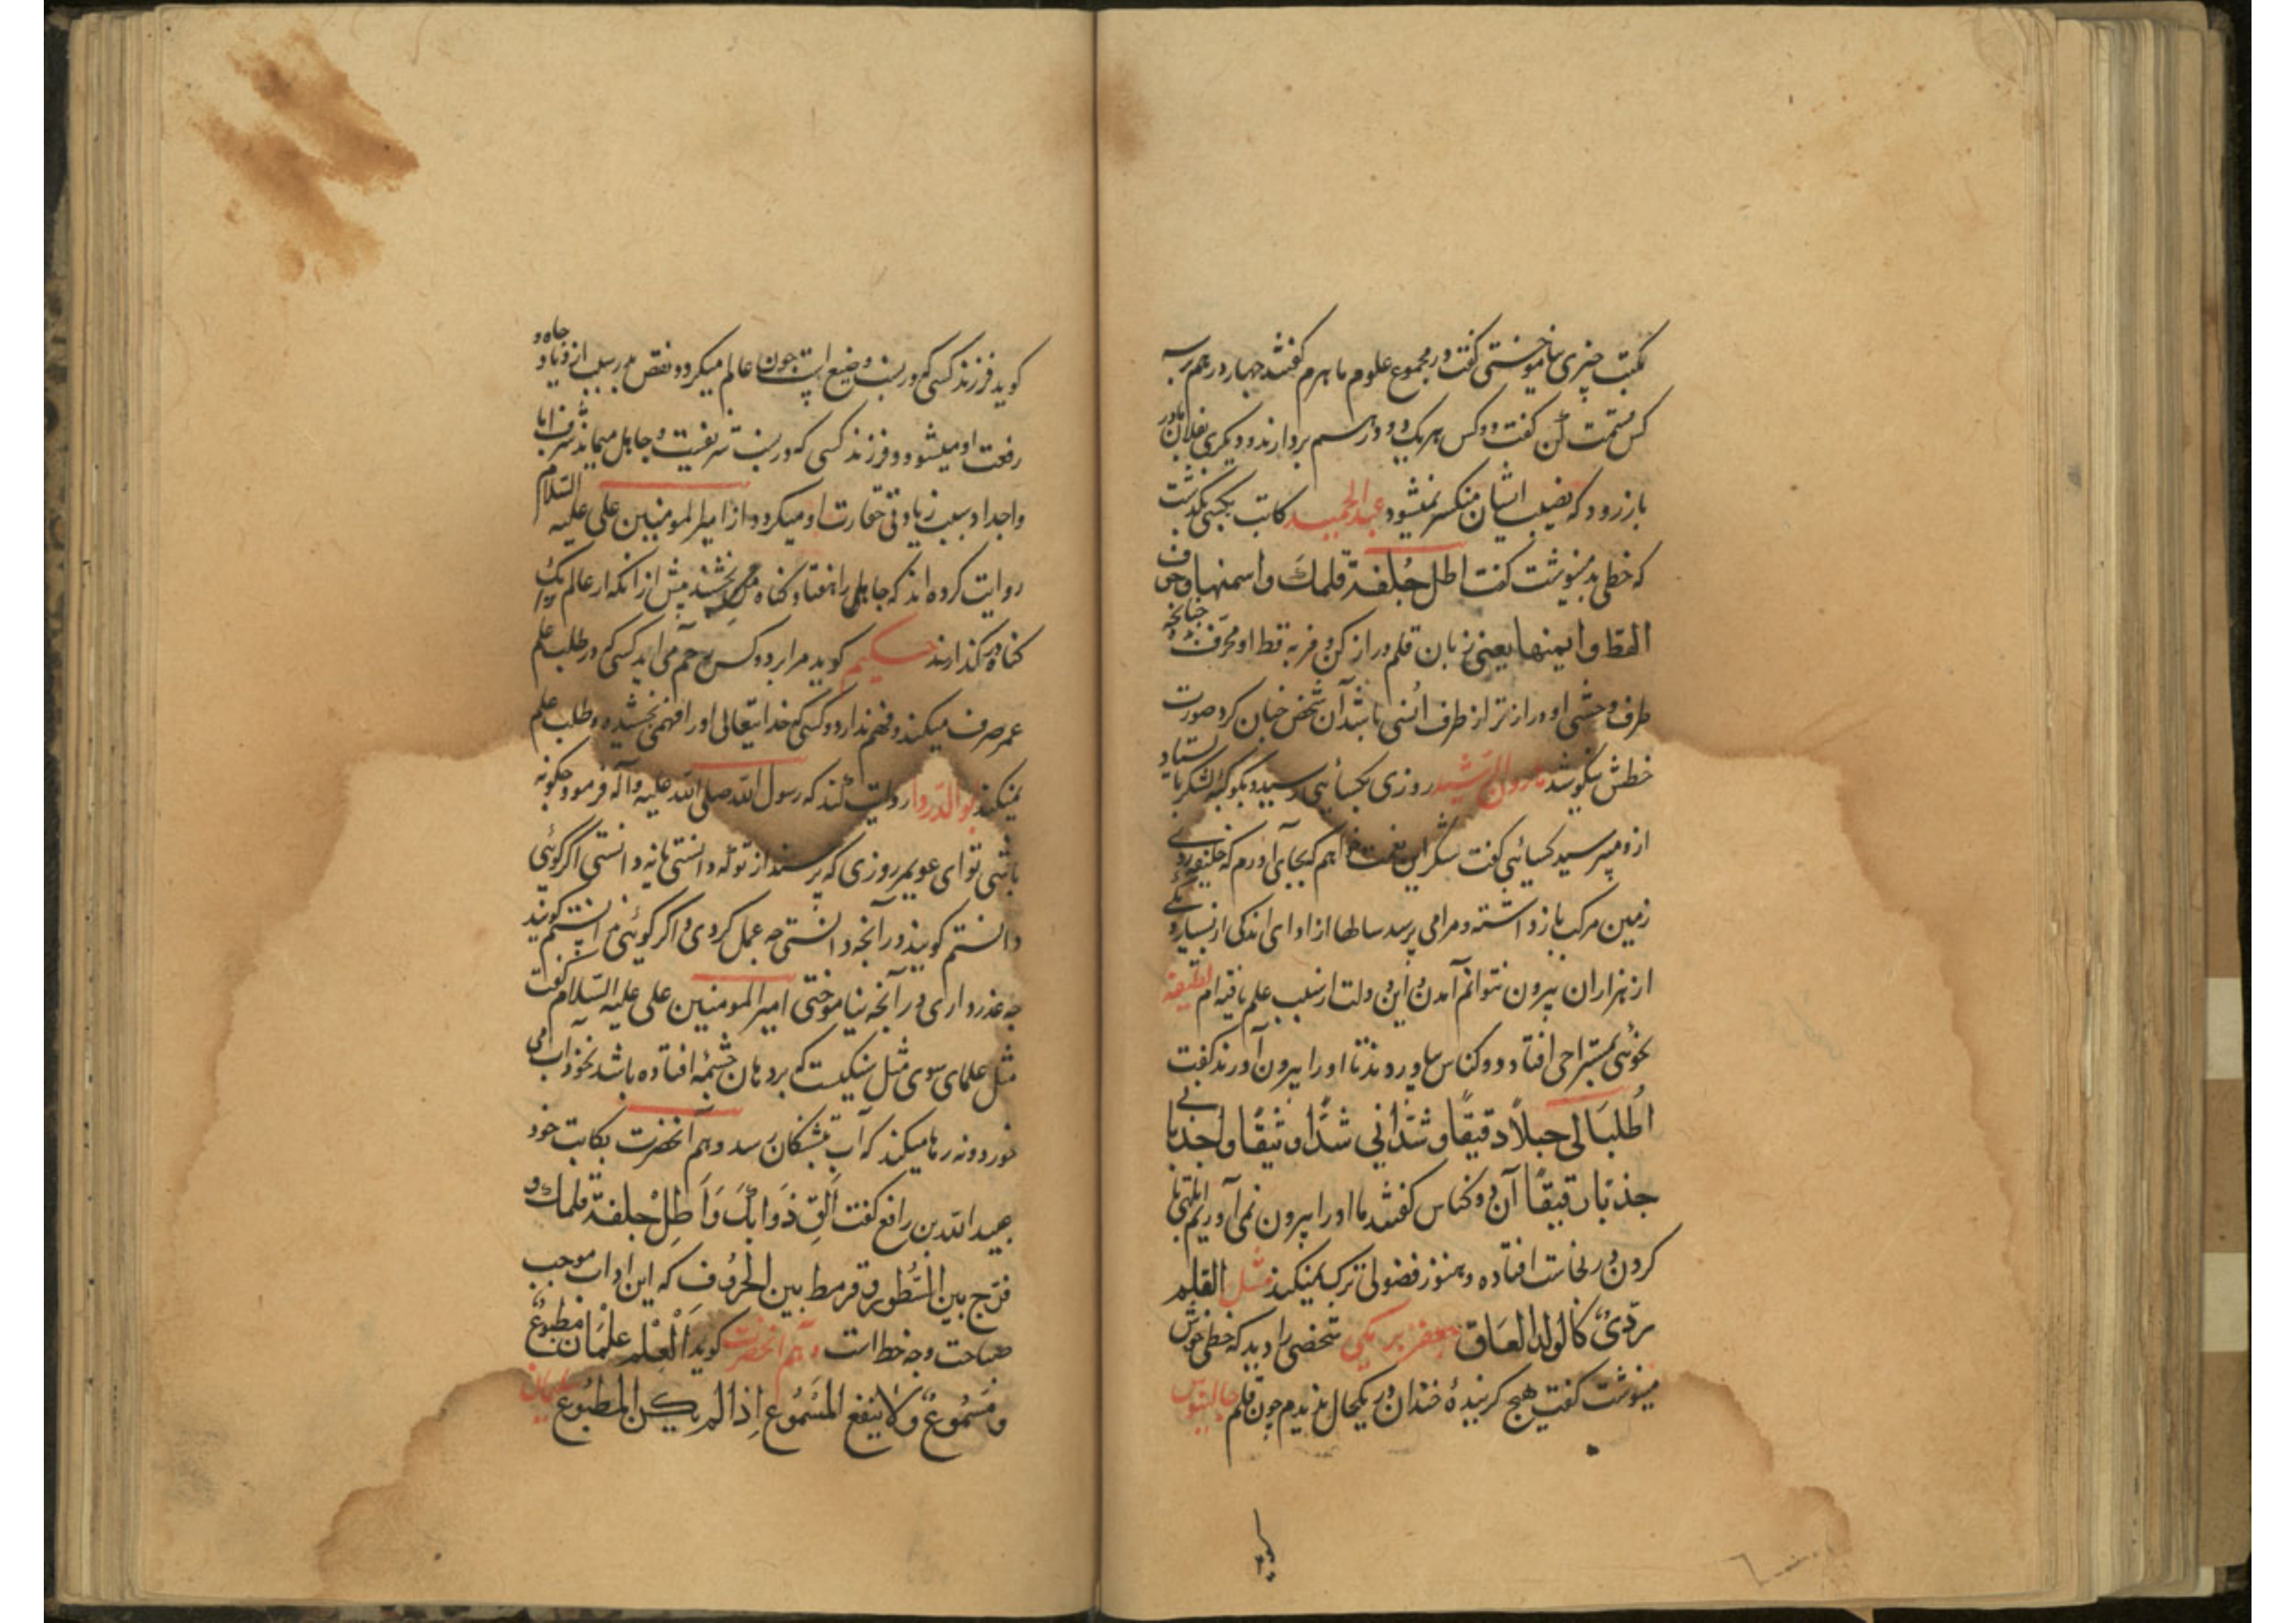 بمکتب چیزی نیاموختی گفت در مجموع علوم ماهرم گفتند چهار درهم بر سه
کس قسمت کن گفت دو کس هر یک دو درهم بردارند و دیگری بفلان مادر
باز رود که نصیب ایشان منکسر نمیشود عبدالحمید کاتب بکسی بگذشت
که خطی بد مینوشت گفت اطل جلفة قلمك واسمنها وحرف
القط وایمنها یعنی زبان قلم دراز کن و فربه قط او محرف چنانچه
طرف وحشی او درازتر از طرف انسی باشد آن شخص چنان کرد صورت
خطش نیکو شد هارون الرشید روزی بکسائی رسید و بکوکبه لشکر باستاد
از و میپرسید کسائی گفت شکر این نعمت خواهم که بجای آورم که خلیفه روی
زمین مرکب باز داشته و مرا می پرسد سالها از ادای اندکی از بسیار و یکی
از هزاران بیرون نتوانم آمدن و این دولت از سبب علم یافته ام لطیفه
نحوئی بمستراحی افتاد و دو کناس بیاوردند تا او را بیرون آورند گفت
اُطلبا لی حبلاً دقیقًا و شدّانی شدًّا وثیقًا واجذبانی
جذبًا رقیقًا آن دو کناس گفتند ما او را بیرون نمی آوریم
کردن در نجاست افتاده و هنوز فضولی ترک نمیکند مثل القلم
الردیء کالولد العاق جعفر برمکی شخصی را دید که خطی خوش
مینوشت گفت هیچ گرینده خندان در یکحال ندیدم چون قلم جالینوس
گوید
گوید فرزند کسی که در نسب وضیع است چون عالم میگردد نقص نسب سبب ازدیاد جاه و
رفعت او میشود و فرزند کسی که در نسب شریفست و جاهل میماند شرف ابا
و اجداد سبب زیادتی حقارت او میگردد از امیرالمومنین علی علیه السلام
روایت کرده اند که جاهل را هفتاد گناه می بخشند پیش از انکه از عالم یک
گناه در گذارند حکیم گوید مرا بر دو کس رحم می آید کسی که در طلب علم
عمر صرف میکند و فهم ندارد و کسی که خدایتعالی او را فهم بخشیده و طلب علم
نمیکند ابوالدردا روایت کند که رسول الله صلی الله علیه و آله فرمود چگونه
باشی تو ای عویمر روزی که پرسند از تو که دانستی یا نه دانستی اگر گوئی
دانستم گویند در آنچه دانستی چه عمل کردی و اگر گوئی ندانستم گویند
چه عذر داری در آنچه نیاموختی امیرالمومنین علی علیه السلام گفت
مثل علمای سوی مثل سنگیست که بر دهان چشمه افتاده باشد نه خود آب می
خورد و نه رها میکند که آب بتشنگان رسد و هم آنحضرت بکاتب خود
عبیدالله بن رافع گفت اَلِقْ دَوَاتَكَ وَاَطِلْ جلفة قلمك و
فرّج بین السُّطور و قرمط بین الحُرُوف که این اداب موجب
صباحت وجه خط است و هم آنحضرت گوید اَلْعِلْم علمان مطبوع
ومَسْمُوع ولا ینفع المَسْمُوع اِذا لم یکن المطبُوع سلیمان